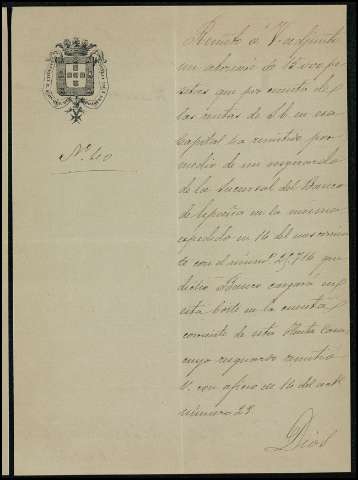 Nº. 40
Remito á V. adjunto
un abonaré de 15.000 pe
setas que por cuenta de
las rentas de S. E. en esa
Capital ha remitido por
medio de un resguardo
de la Sucursal del Banco
de España en la misma
expedido en 14 del mes corrien
te con el núm.º 27.716 que
dicho Banco cargará en
esta Corte en la cuenta
corriente de esta Casa,
cuyo resguardo remitió
V. con oficio de 14 del actl
número 29.
Dios